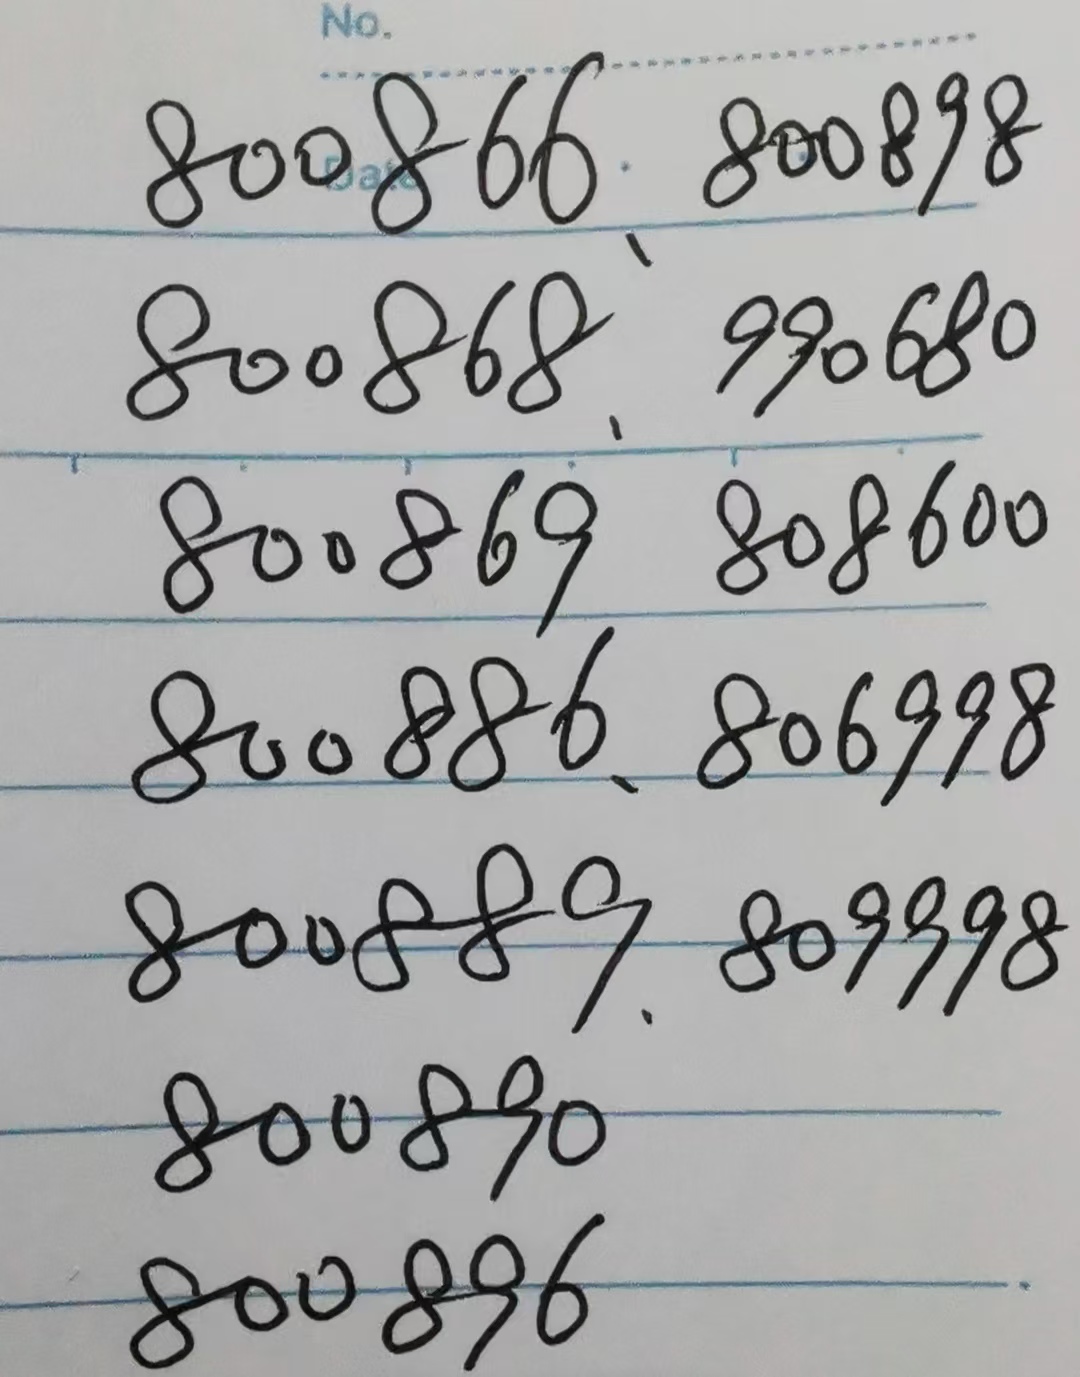 No.
Date
800866、 800898
800868、 990680
800869 808600
800886、 806998
800889、 809998
800890
800896